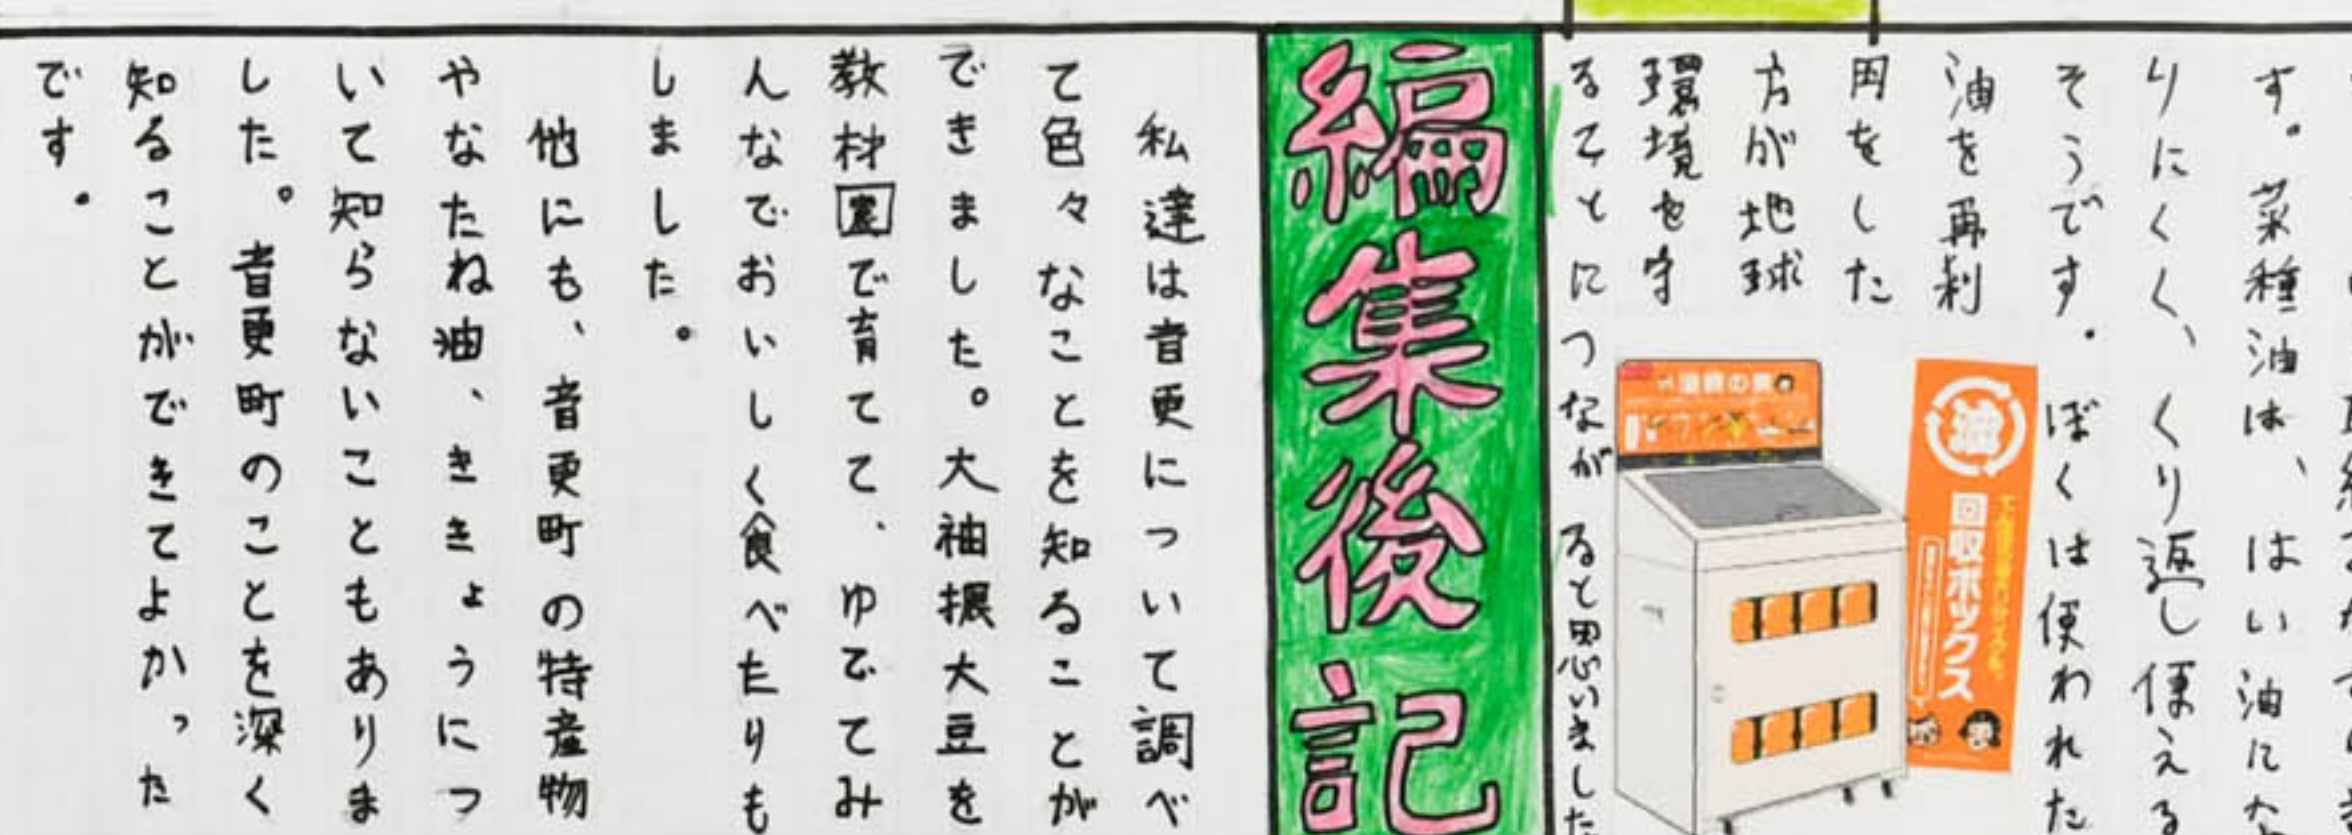 す。菜種油は、はい油にな
りにくく、くり返し使える
そうです。ぼくは使われた
油を再利
用をした
方が地球
環境を守
ることにつながると思いました
油
回収ボックス
編集後記
私達は音更について調べ
て色々なことを知ることが
できました。大袖振大豆を
教材園で育てて、ゆでてみ
んなでおいしく食べたりも
しました。
他にも、音更町の特産物
やなたね油、ききょうにつ
いて知らないこともありま
した。音更町のことを深く
知ることができてよかった
です。